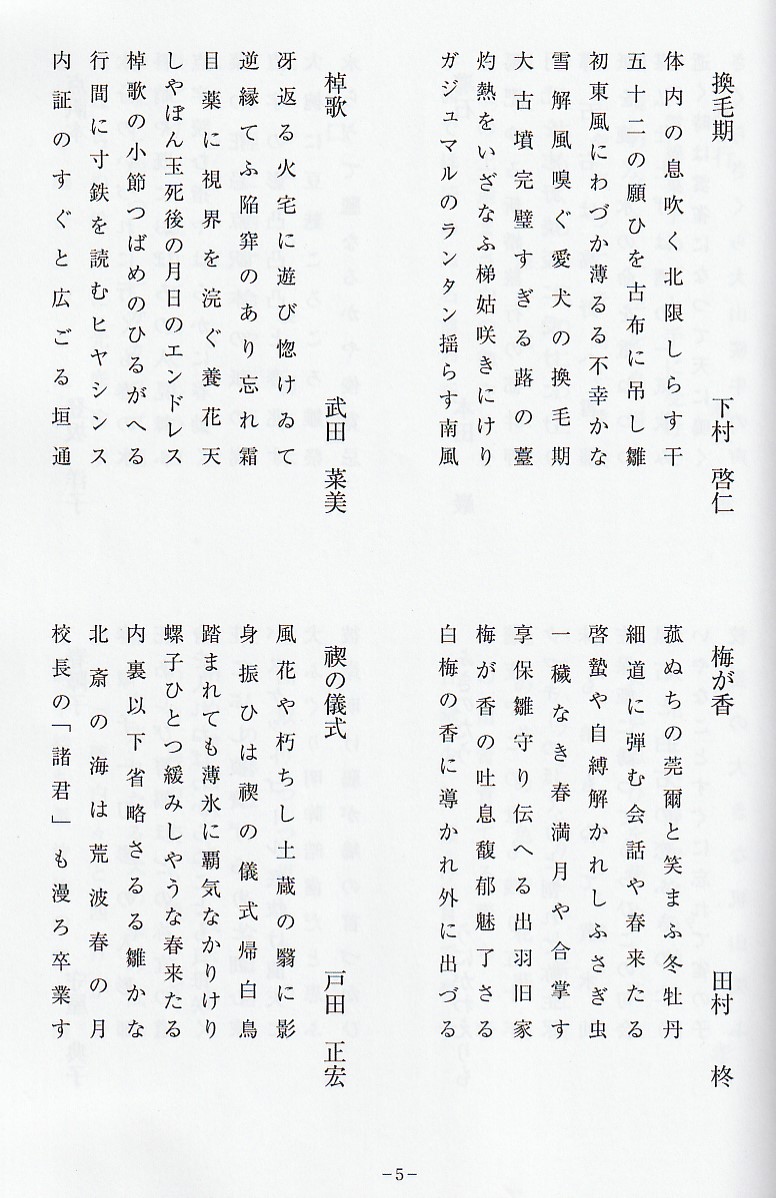 換毛期
下村 啓仁
体内の息吹く北限しらす干
五十二の願ひを古布に吊し雛
初東風にわづか薄るる不幸かな
雪解風嗅ぐ愛犬の換毛期
大古墳完璧すぎる蕗の薹
灼熱をいざなふ梯姑咲きにけり
ガジュマルのランタン揺らす南風
棹歌
武田 菜美
冴返る火宅に遊び惚けゐて
逆縁てふ陥穽のあり忘れ霜
目薬に視界を浣ぐ養花天
しやぼん玉死後の月日のエンドレス
棹歌の小節つばめのひるがへる
行間に寸鉄を読むヒヤシンス
内証のすぐと広ごる垣通
梅が香
田村 柊
菰ぬちの莞爾と笑まふ冬牡丹
細道に弾む会話や春来たる
啓蟄や自縛解かれしふさぎ虫
一穢なき春満月や合掌す
享保雛守り伝へる出羽旧家
梅が香の吐息馥郁魅了さる
白梅の香に導かれ外に出づる
禊の儀式
戸田 正宏
風花や朽ちし土蔵の翳に影
身振ひは禊の儀式帰白鳥
踏まれても薄氷に覇気なかりけり
螺子ひとつ緩みしやうな春来たる
内裏以下省略さるる雛かな
北斎の海は荒波春の月
校長の「諸君」も漫ろ卒業す
－5－